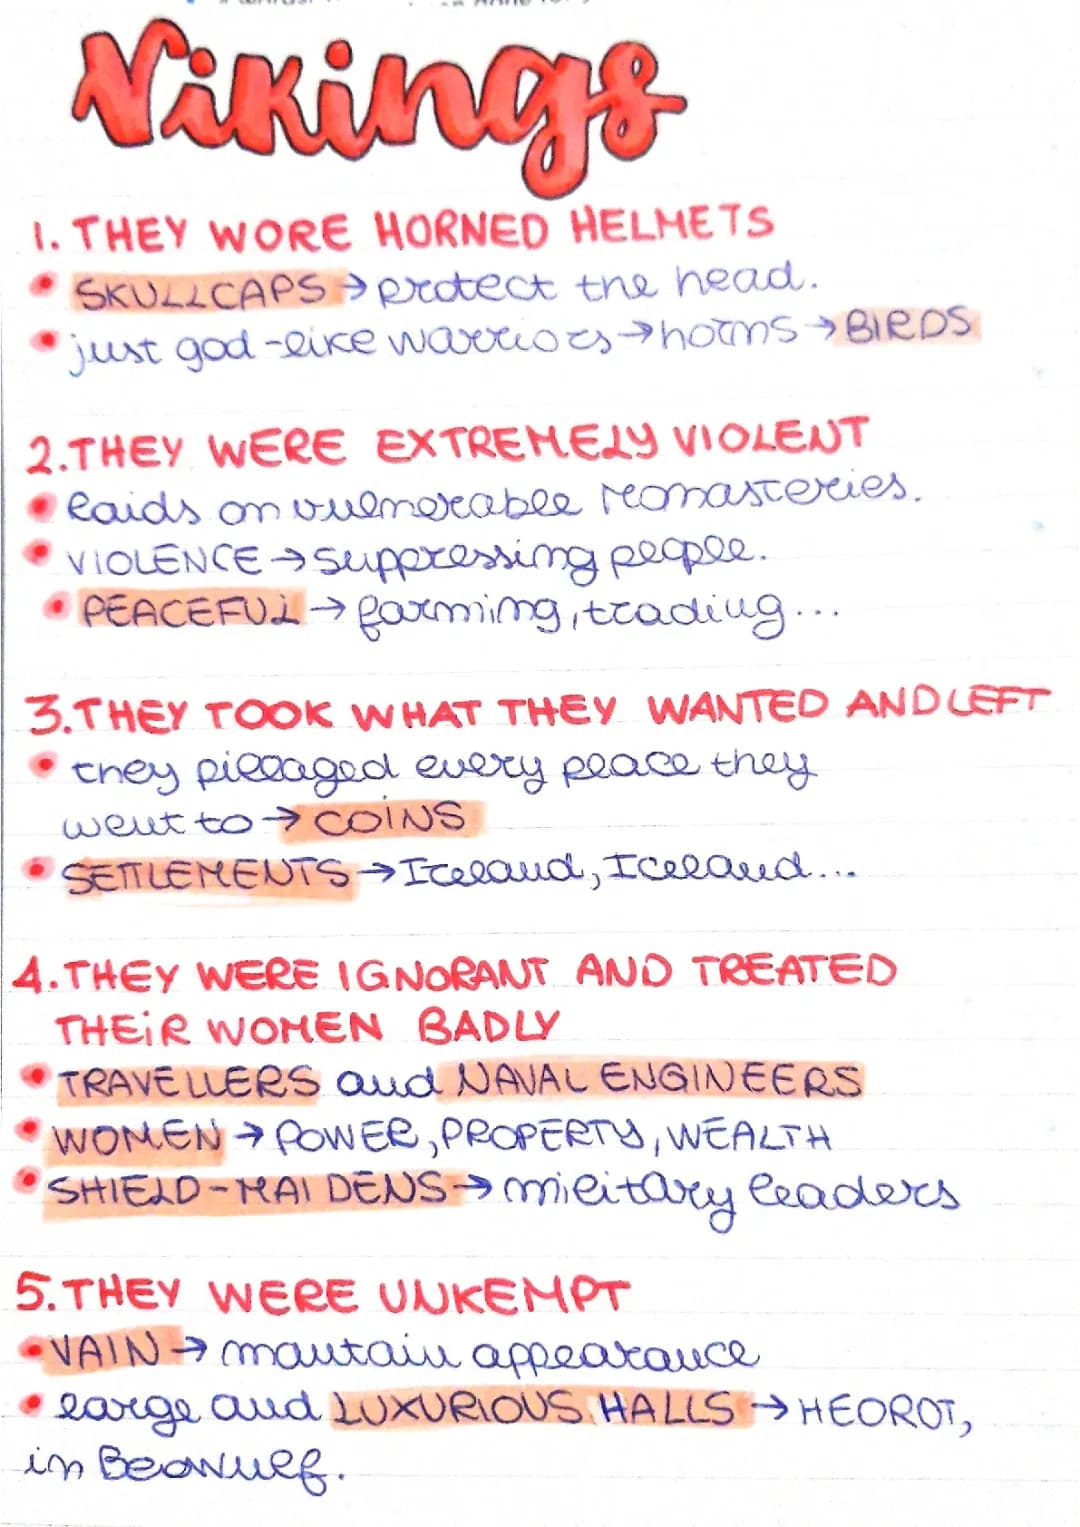 Vikings
1. THEY WORE HORNED HELMETS
• SKULLCAPS → protect the head.
• just god-like warriors → horns → BIRDS
2. THEY WERE EXTREMELY VIOLENT
• Raids on vulnerable monasteries.
• VIOLENCE → suppressing people.
• PEACEFUL → farming, trading...
3. THEY TOOK WHAT THEY WANTED AND LEFT
• they pillaged every place they
went to → COINS
• SETTLEMENTS → Iceland, Iceland...
4. THEY WERE IGNORANT AND TREATED
THEIR WOMEN BADLY
• TRAVELLERS and NAVAL ENGINEERS
• WOMEN → POWER, PROPERTY, WEALTH
• SHIELD-MAIDENS → military leaders
5. THEY WERE UNKEMPT
• VAIN → mantain appearance
• large and LUXURIOUS HALLS → HEOROT,
in Beowulf.